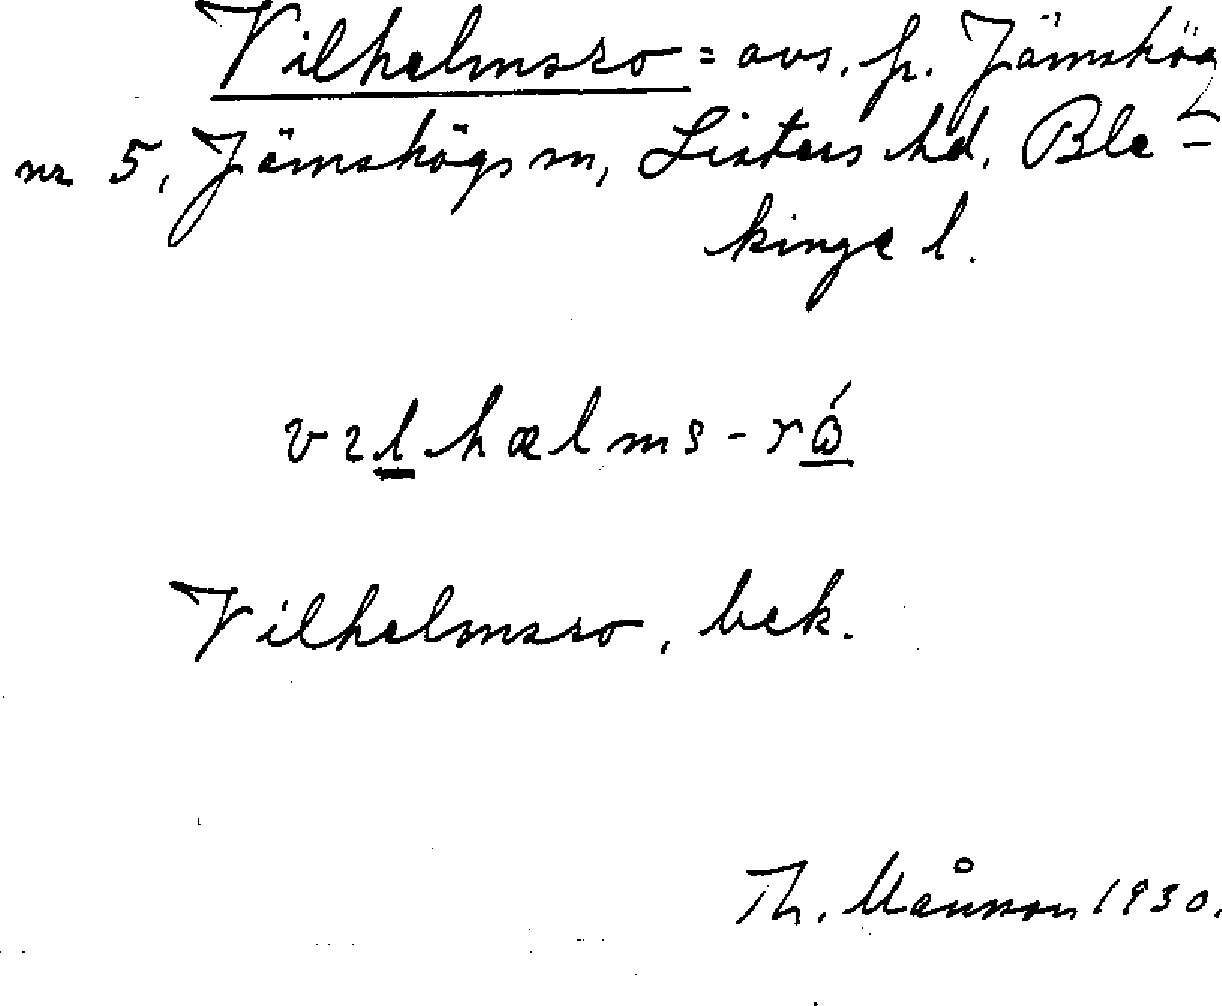 Vilhelmsro = avs. fr. Jämshög
nr 5, Jämshögs sn, Listers hd, Ble-
kinge l.
vılhælms-ró
Vilhelmsro, bek.
Th. Månson 1930.